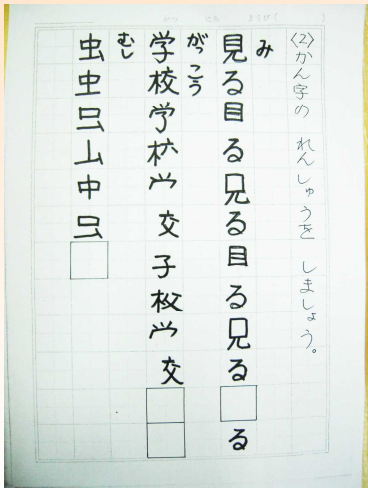 〈2〉かん字の れんしゅうを しましょう。
み
見る目る兄る目る兄る□る
がっこう
学校学校⺍交子枚⺍交□□
むし
虫虫
中